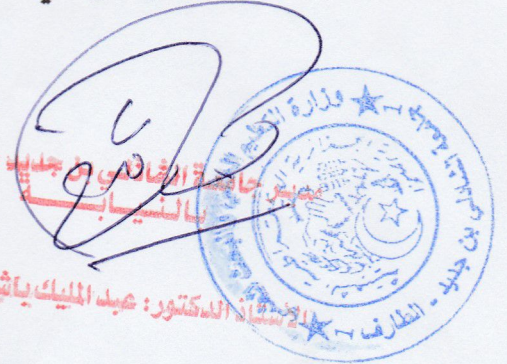 مدير جامعة الشاذلي بن جديد
بالنيابة
الأستاذ الدكتور: عبد المليك باش
وزارة التعليم العالي والبحث العلمي
جامعة الشاذلي بن جديد - الطارف